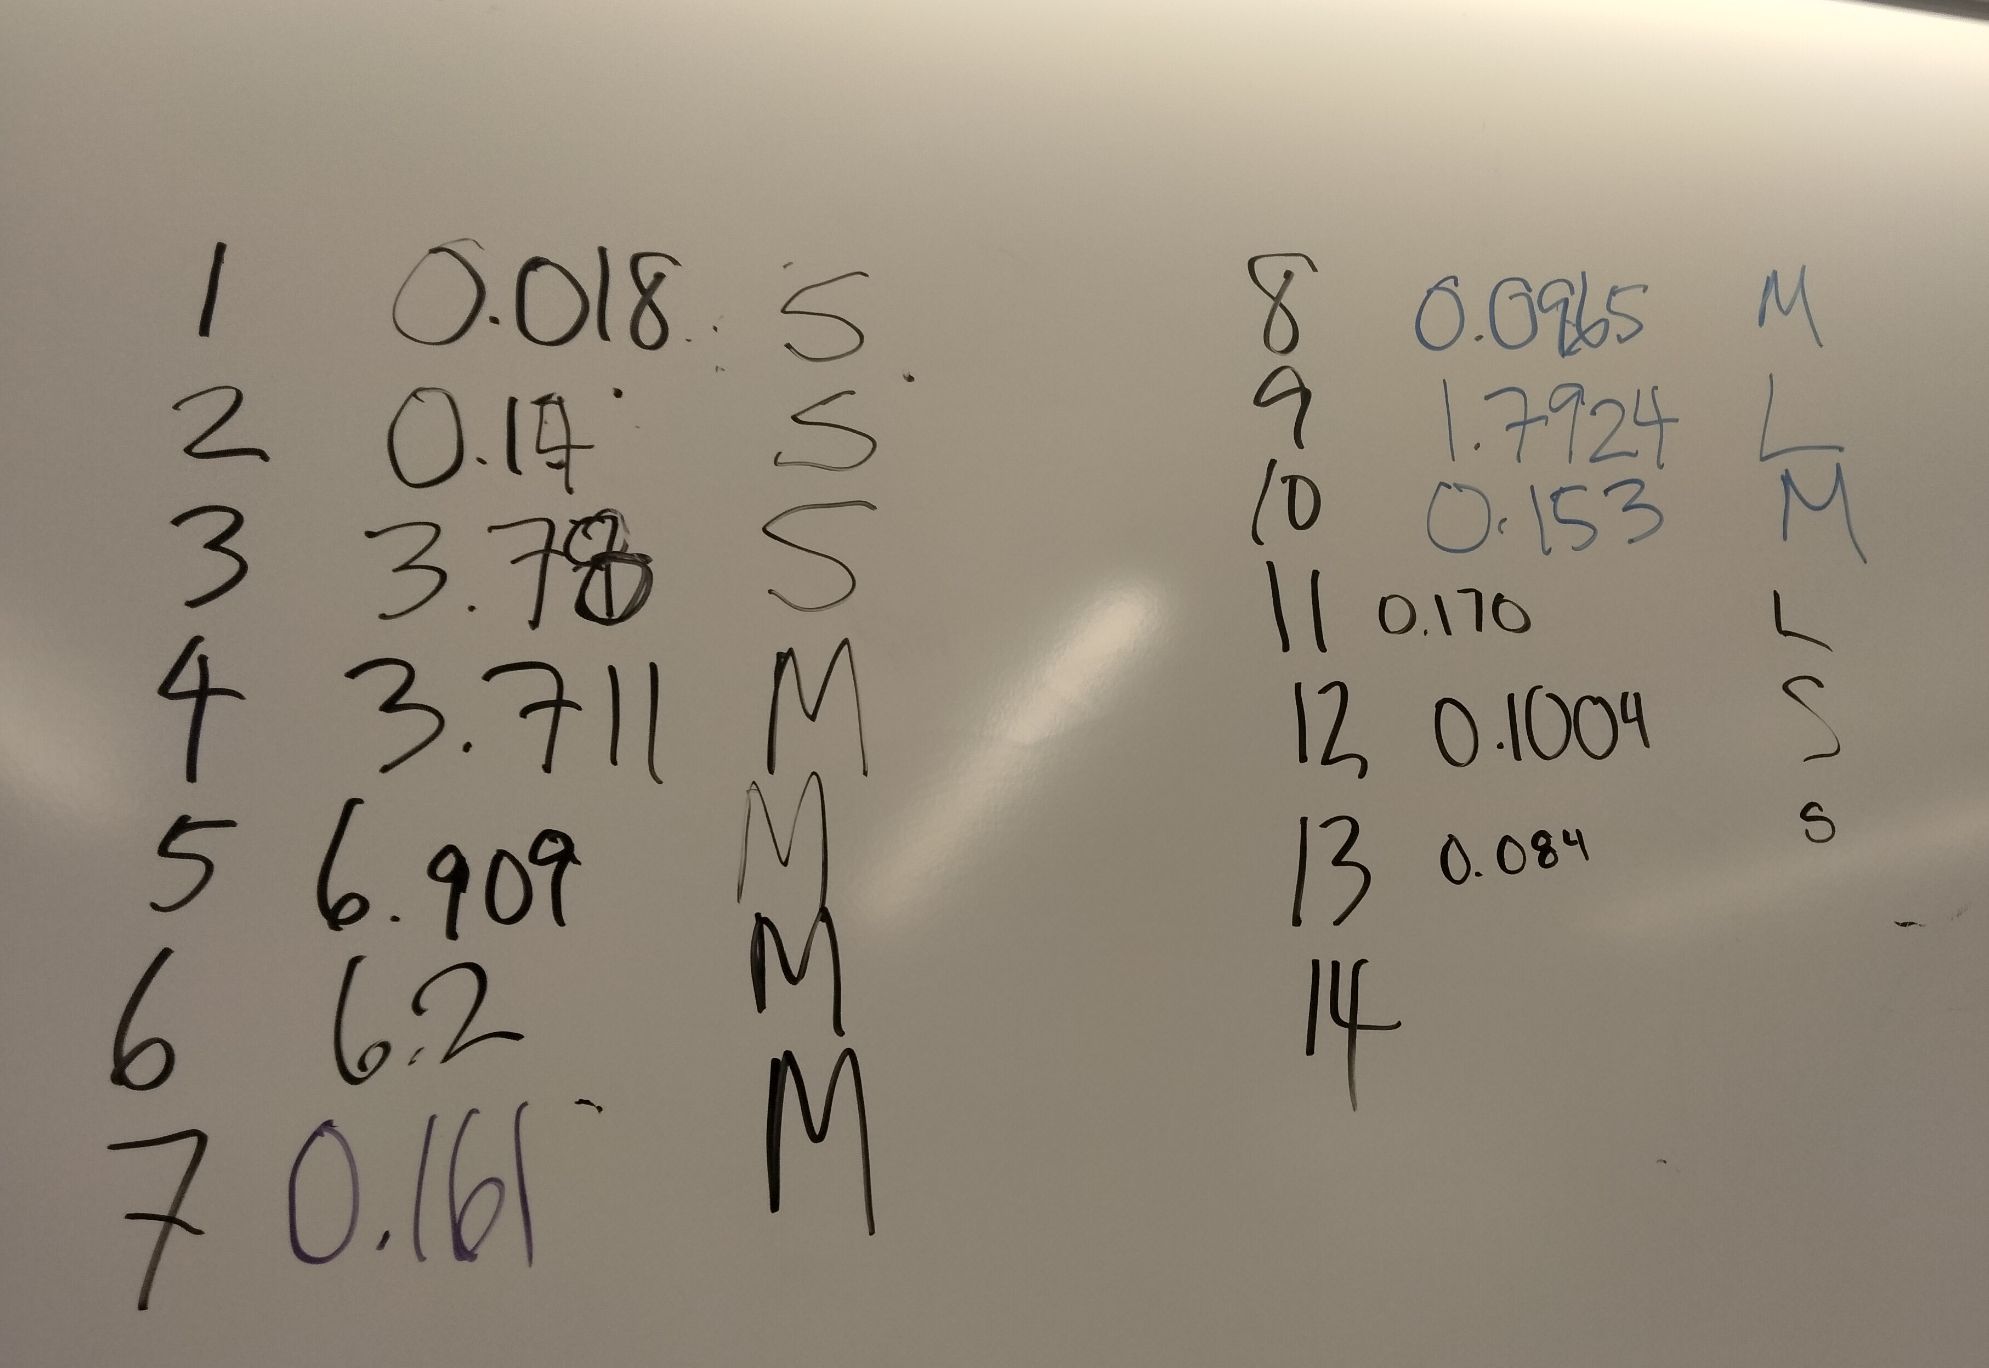 1 0.018 S
2 0.14 S
3 3.78 S
4 3.711 M
5 6.909 M
6 6.2 M
7 0.161 M
8 0.0965 M
9 1.7924 L
10 0.153 M
11 0.170 L
12 0.1004 S
13 0.084 S
14